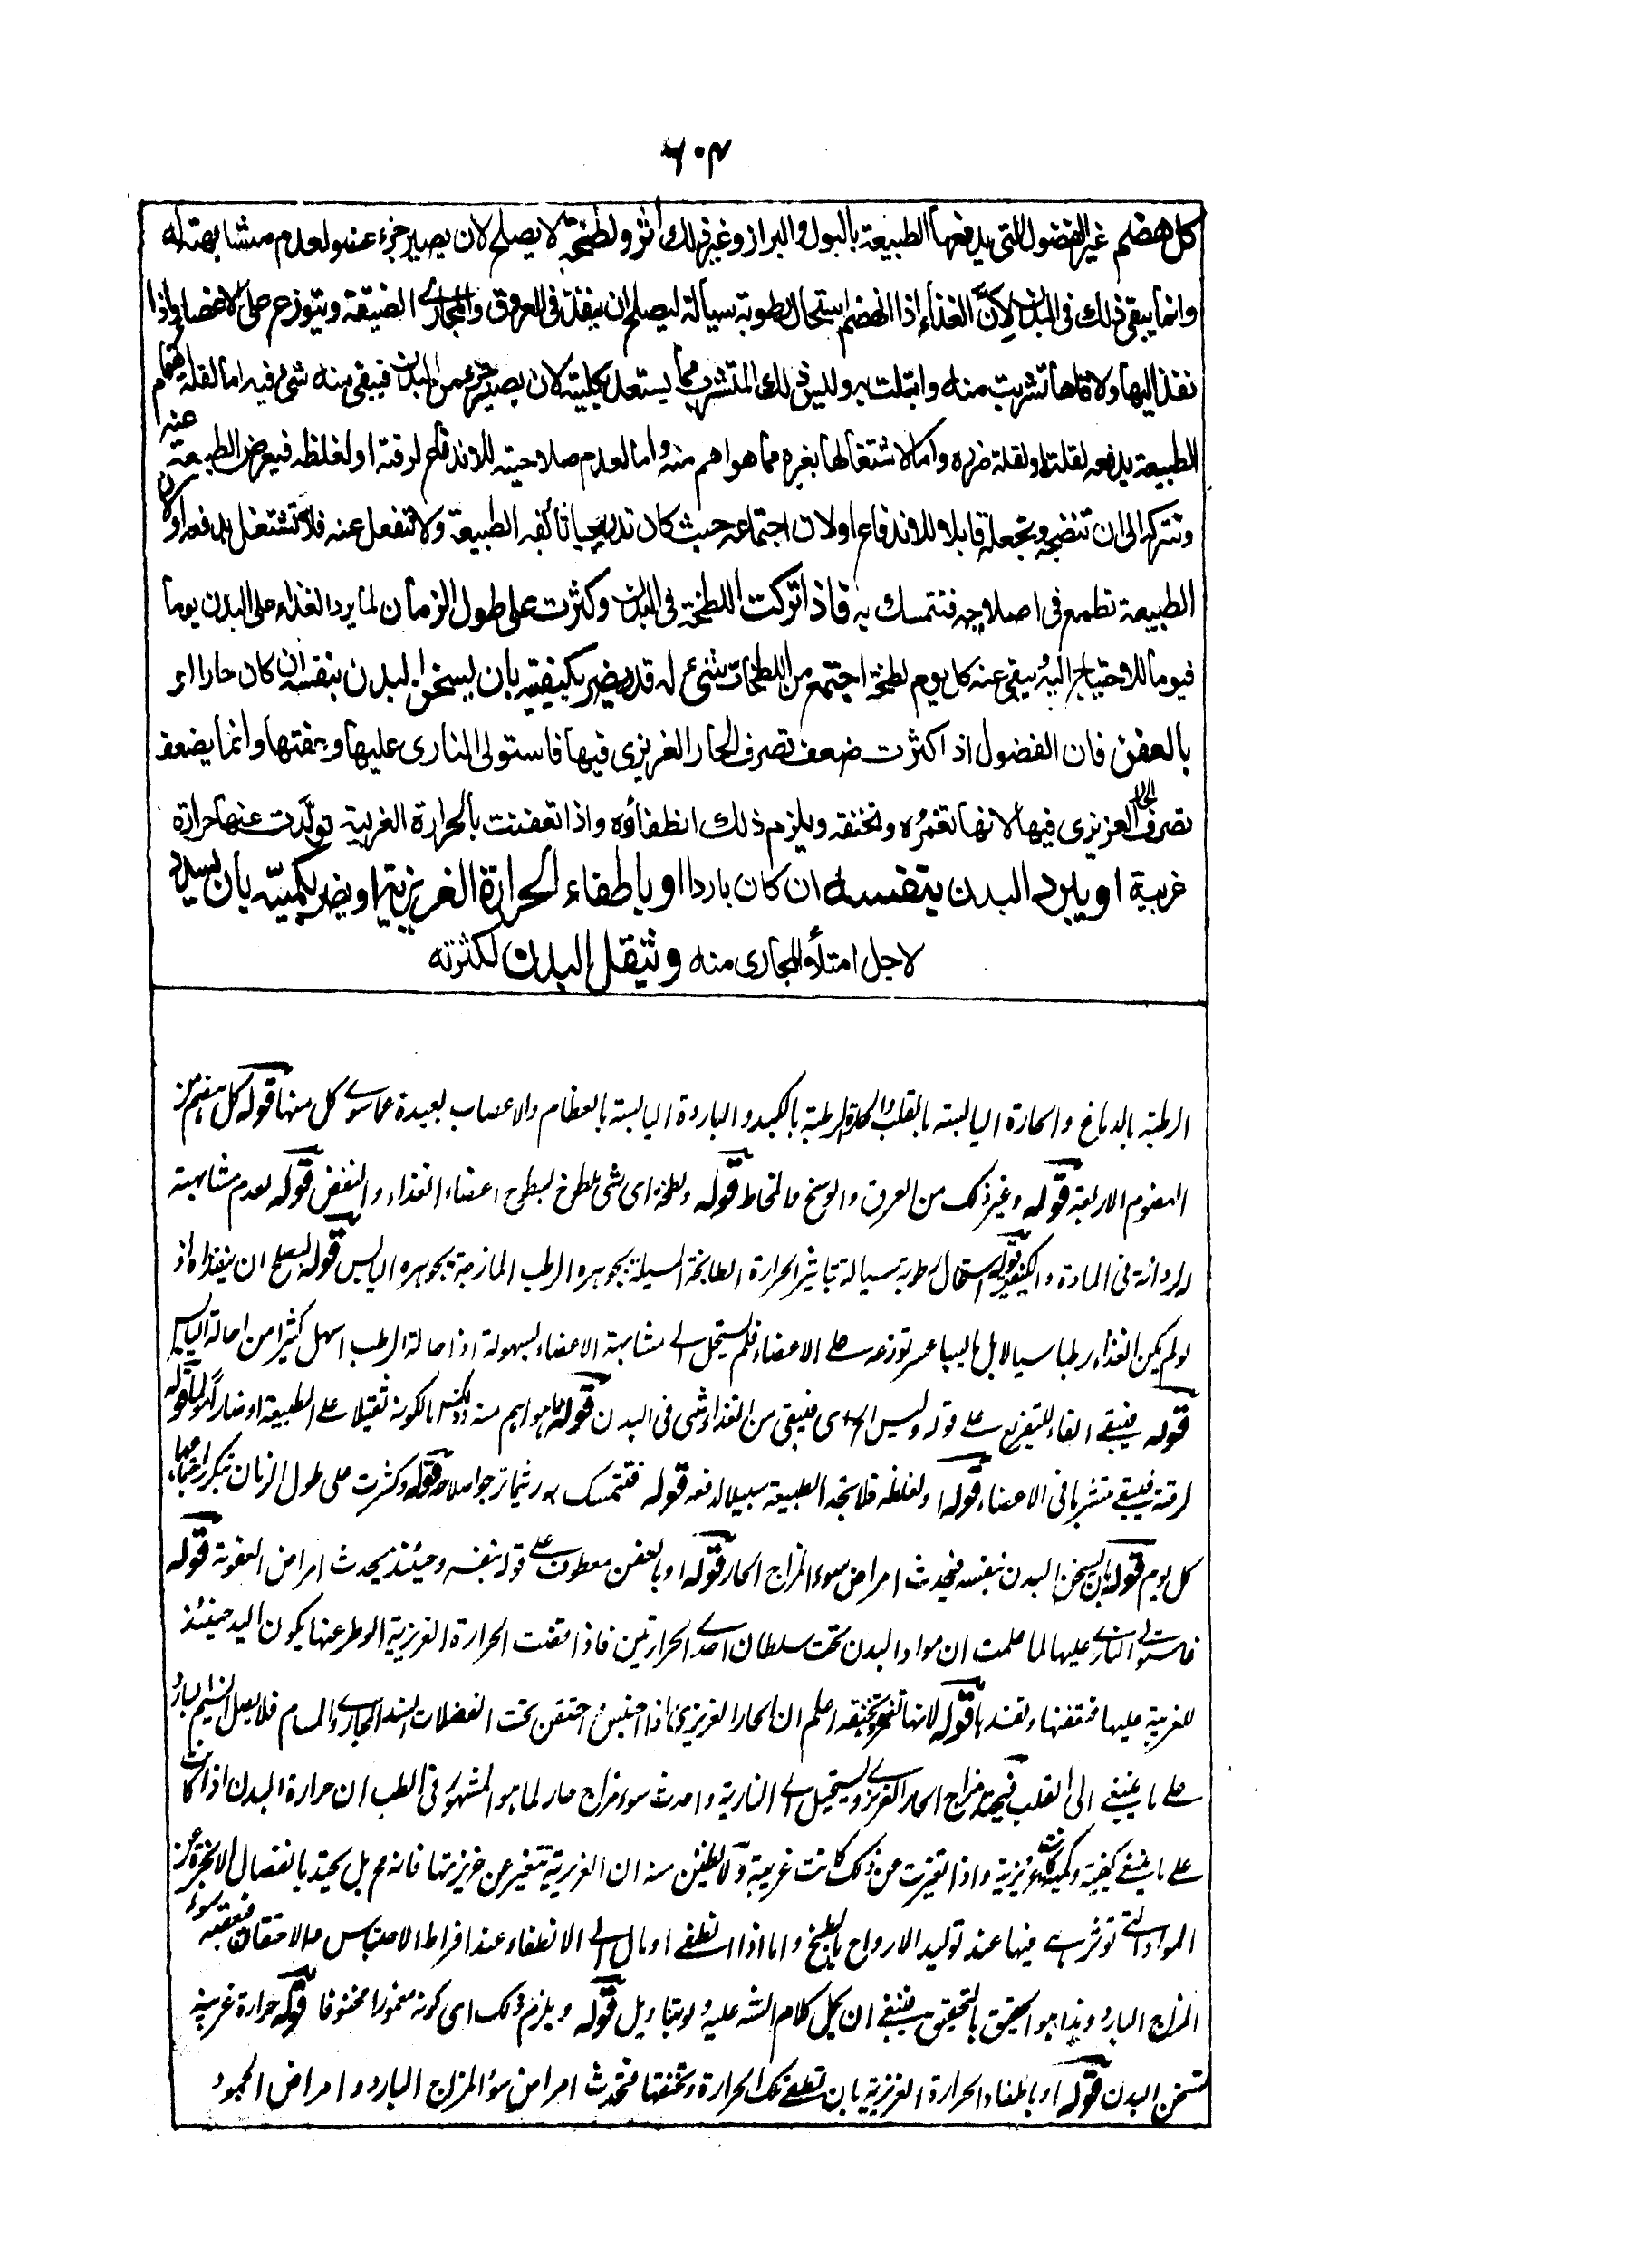 ٦٠٣
كل هضم غير الفضول التى يدفعها الطبيعة بالبول والبراز وغير ذلك اثر ولطخة لا يصلح لان يصير جزء عضو لعدم مشابهته له
وانما يبقى ذلك فى البدن لان الغذاء اذا انهضم استحال رطوبة سيالة ليصلح ان ينفذ فى العروق والمجارى الضيقة ويتوزع على الاعضاء واذا
نفذ اليها ولاقاها تشربت منه وابتلت به وليس ذلك المتشرب مما يستعد بكليته لان يصير جزء من البدن فيبقى منه شىء فيه اما لقلة اهتمام
الطبيعة بدفعه لقلته او لقلة ضرره واما لاشتغالها بغيره مما هو اهم منه واما لعدم صلاحيته للاندفاع لرقته او لغلظه فيعرض الطبيعة عنه
وتتركه الى ان تنضجه وتجعله قابلا للاندفاع او لان اجتماعه حيث كان تدريجيا تألفه الطبيعة ولا تنفعل عنه فلا تشتغل بدفعه او لان
الطبيعة تطمع فى اصلاحه فتتمسك به فاذا تركت اللطخة فى البدن وكثرت على طول الزمان لما يرد الغذاء على البدن يوما
فيوما للاحتياج اليه يبقى عنه كل يوم لطخة اجتمع من اللطخات شىء له قدر يضر بكيفيته بان يسخن البدن بنفسه ان كان حارا او
بالعفن فان الفضول اذا كثرت ضعف تصرف الحار الغريزى فيها فاستولى النارى عليها وعفنتها وانما يضعف
تصرف الحار الغريزى فيها لانها تغمره وتخنقه ويلزم ذلك انطفاؤه واذا تعفنت بالحرارة الغريبة تولدت عنها حرارة
غريبة او يبرد البدن بنفسه ان كان باردا او باطفاء الحرارة الغريزية او يضر بكميته بان يسدد
لاجل امتلأ المجارى منه وتثقل البدن لكثرته
الرطبة بالدماغ والحارة اليابسة بالقلب والحارة الرطبة بالكبد والباردة اليابسة بالعظام والاعصاب بعيدة عما سوى كل منها قوله كل هضم من
الهضوم الاربعة قوله وغير ذلك من العرق والوسخ والمخاط قوله ولطخة اى شىء يلطخ بسطوح اعضاء الغذاء والنفض قوله لعدم مشابهته
له فى المادة والكيفية قوله استحال رطوبة سيالة بتاثير الحرارة الطابخة المسيلة بجوهره الرطب المازجة بجوهره اليابس قوله ليصلح ان ينفذ اذ
لو لم يكن الغذاء رطبا سيالا بل يابسا عسر توزعه على الاعضاء فلم يستحل الى مشابهة الاعضاء بسهولة اذ احالة الرطب اسهل كثيرا من احالة اليابس
قوله فيبقى الفاء للتفريع على قوله وليس اى فيبقى من الغذاء شىء فى البدن قوله مما هو اهم منه لكونه ثقيلا على الطبيعة او ضارا قوله
لرقته فيبقى متشربا فى الاعضاء قوله او لغلظه فلا تجد الطبيعة سبيلا لدفعه قوله فتتمسك به ريثما ترجو اصلاحه قوله وكثرت على طول الزمان بتكرر اجتماعها
كل يوم قوله بان يسخن البدن بنفسه فيحدث امراض سوء المزاج الحار قوله او بالعفن معطوف على قوله بنفسه وحينئذ يحدث امراض العفونة قوله
فاستولى النارى عليها لما علمت ان مواد البدن تحت سلطان احدى الحرارتين فاذا رفعت الحرارة الغريزية عنها يكون اليد حينئذ
للغريبة عليها فتعفنها وتفسدها قوله لانها تغمره وتخنقه اعلم ان الحار الغريزى اذا احتبس احتقن تحت الفضلات المسددة المجارى والمسام فلا يصل النسيم البارد
على ما ينبغى الى القلب فيحتد مزاج الحار الغريزى ويستحيل الى النارية واحدث سوء مزاج حار لما هو المشهور فى الطب ان حرارة البدن اذا كانت
على ما ينبغى كيفية وكمية كانت غريزية واذا تغيرت عن ذلك كانت غريبة ولا تظن منه ان الغريزية تتغير عن غريزيتها فانه مح بل يحتد بانفصال الابخرة عن
المواد التى توثر هى فيها عند توليد الارواح بالطبخ واما اذا انطفى او مال الى الانطفاء عند افراط الاحتباس والاحتقان فيعقبه سوء
المزاج البارد وهذا هو الحقيق بالتحقيق فينبغى ان يحمل كلام الشه عليه ولو بتاويل قوله ويلزم ذلك اى كونه مغمورا مخنوقا قوله حرارة غريبة
تسخن البدن قوله او باطفاء الحرارة الغريزية بان تطفى تلك الحرارة وتخنقها فتحدث امراض سوء المزاج البارد وامراض الجمود